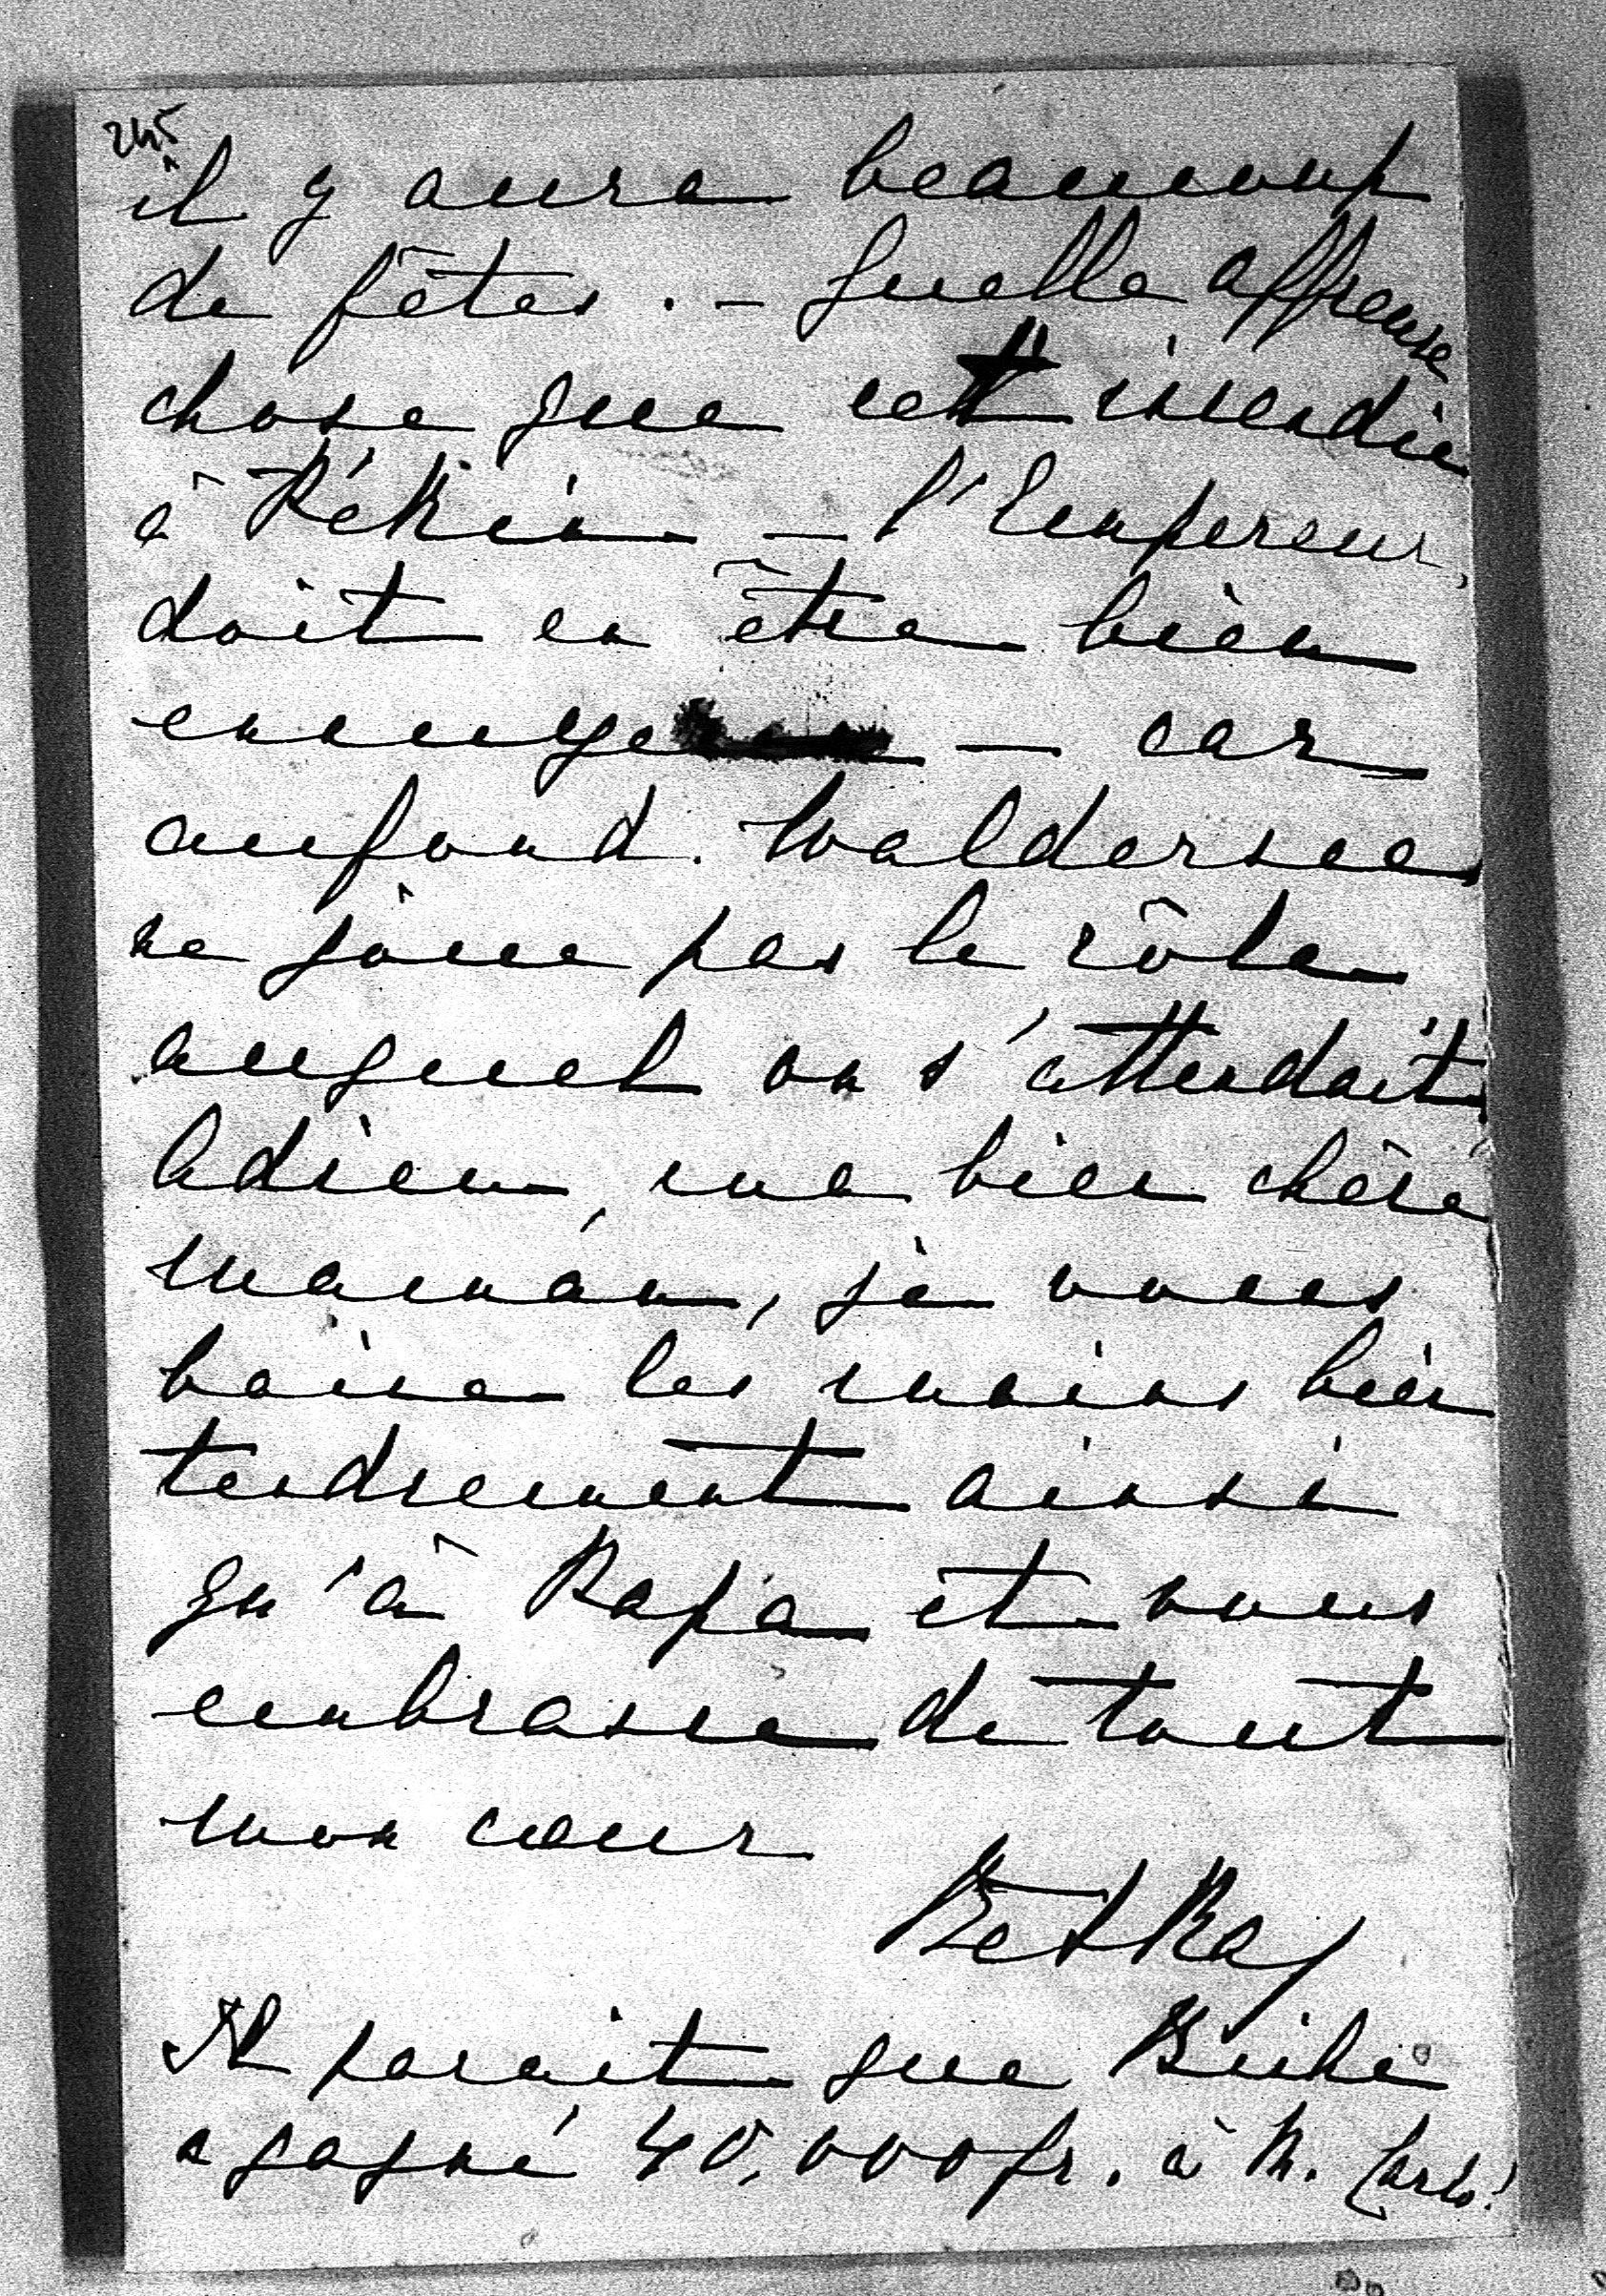 245
il y aura beaucoup
de fêtes. – Quelle affreuse
chose que cet incendie
à Pékin – l'Empereur
doit en être bien
ennuyé – car
au fond Waldersee
ne joue pas le rôle
auquel on s'attendait
Adieu, ma bien chère
maman, je vous
baise les mains bien
tendrement ainsi
qu'à Papa et vous
embrasse de tout
mon cœur
Betka
Il parait que Bichi
a gagné 40,000 fr. à M. Carlo!